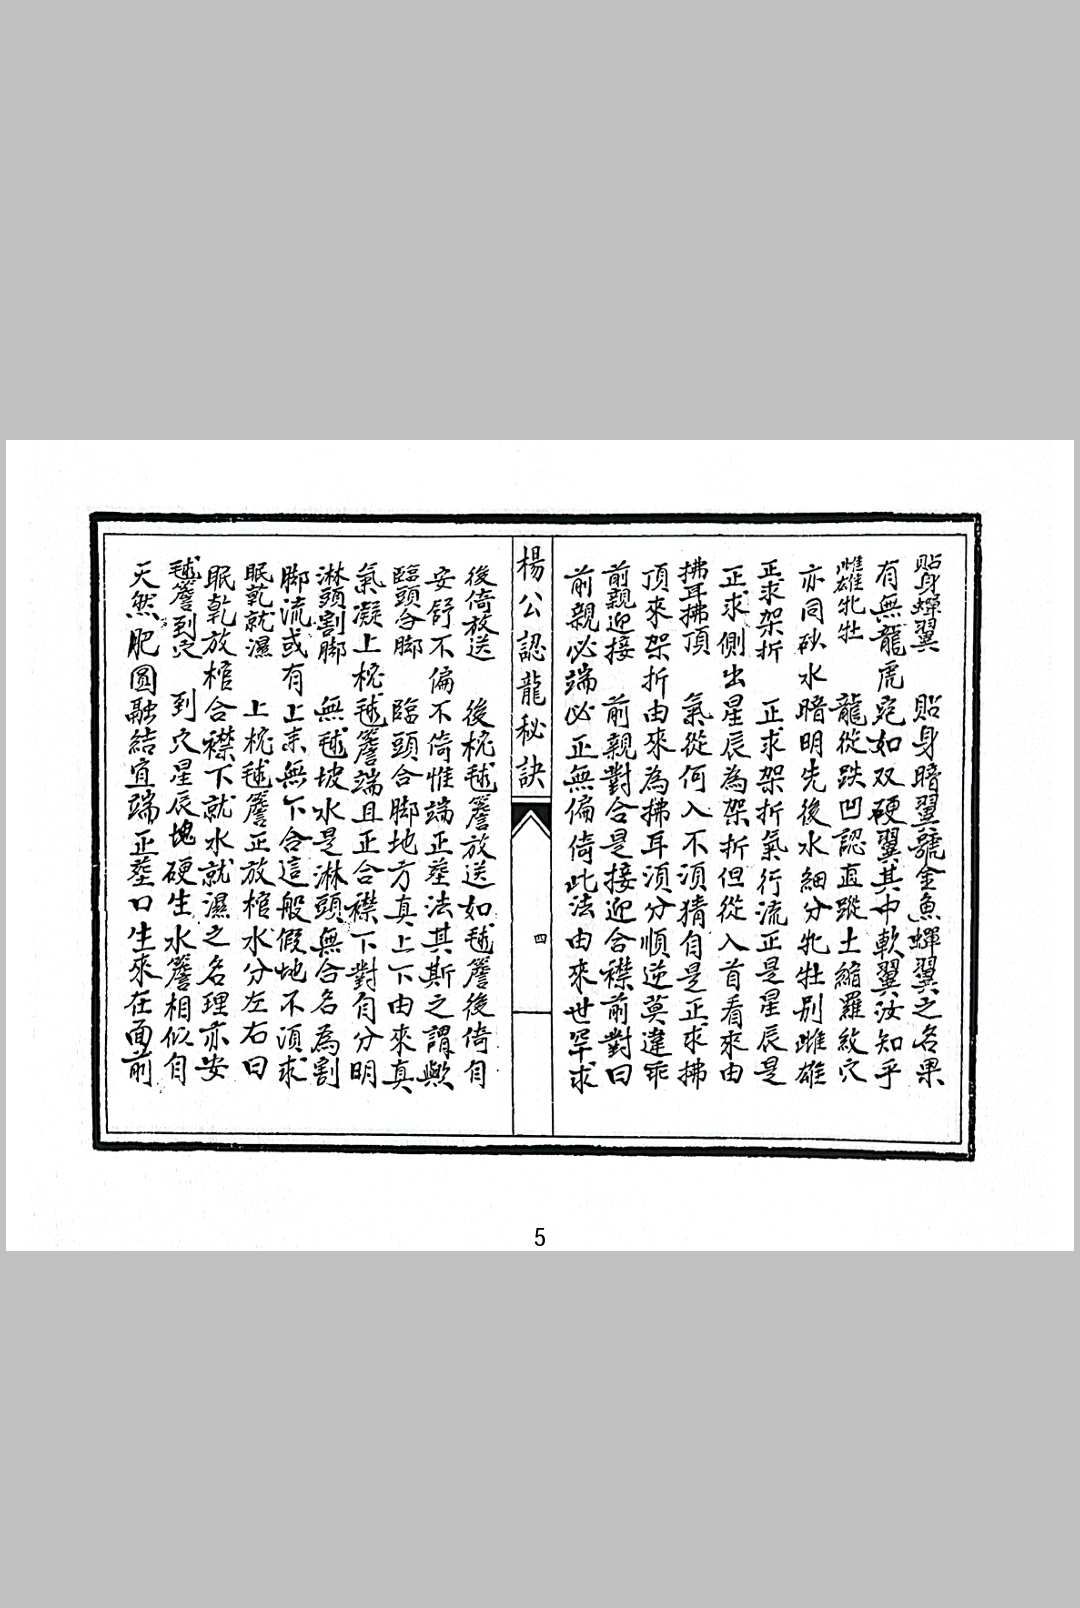 貼身蟬翼　貼身暗翼號金魚蟬翼之名果
有無龍虎宛如双硬翼其中軟翼汝知乎
雌雄牝牡　龍從跌凹認直蹤土縮羅紋穴
亦同砂水暗明先後水細分牝牡別雌雄
正求架折　正求架折氣行流正是星辰是
正求側出星辰為架折但從入首看來由
拂耳拂頂　氣從何入不須猜自是正求拂
頂來架折由來為拂耳須分順逆莫違乖
前親迎接　前親對合是接迎合襟前對曰
前親必端必正無偏倚此法由來世罕求
楊公認龍秘訣
四
後倚放送　後枕毬簷放送如毬簷後倚自
安舒不偏不倚惟端正塟法其斯之謂歟
臨頭合脚　臨頭合脚地方真上下由來真
氣凝上枕毬簷端且正合襟下對自分明
淋頭割脚　無毬坡水是淋頭無合名為割
脚流或有上來無下合這般假地不須求
眠乾就濕　上枕毬簷正放棺水分左右曰
眠乾放棺合襟下就水就濕之名理亦安
毬簷到穴　到穴星辰塊硬生水簷相似自
天然肥圓融結宜端正塟口生來在面前
5